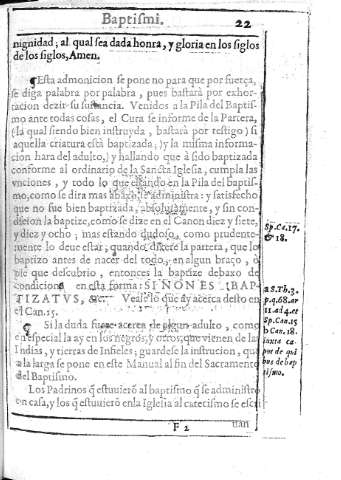 Baptismi. 22
nignidad; al qual sea dada honra, y gloria en los siglos
de los siglos, Amen.
¶Esta admonicion se pone no para que por fuerça,
se diga palabra por palabra, pues bastarà por exhor
tacion dezir su sustancia. Venidos a la Pila del Baptis-
mo ante todas cosas, el Cura se informe de la Partera,
(la qual siendo bien instruyda, bastarà por testigo) si
aquella criatura està baptizada, )y la misma informa
cion hara del adulto,) y hallando que à sido baptizada
conforme al ordinario de la Sancta Iglesia, cumpla las
vnciones, y todo lo que estando en la Pila del baptis-
mo, como se dira mas abaxo, se administra: y satisfecho
que no fue bien baptizada, absolutamente, y sin con-
dicion la baptize, como se dize en el Canon diez y siete,
y diez y ocho; mas estando dudoso, como prudente-
mente lo deue estar, quando dixere la partera, que lo
baptizo antes de nacer del todo, en algun braço, ò
pie que descubrio, entonces la baptize debaxo de
condicion en esta forma: SI NON ES BAP-
TIZATVS, &c. Vease lo que ay acerca desto en
el Can. 15.
¶ Si la duda fuere acerca de algun adulto, como
en especial la ay en los negros, y otros, que vienen de las
Indias, y tierras de Infieles; guardese la instrucion, que
a la larga se pone en este Manual al fin del Sacramento
del Baptismo.
Los Padrinos q̃ estuuierõ al baptismo q̃ se administro
en casa, y los q̃ estuuierõ en la Iglesia al catecismo se escri
F 2 uan
Sp. Ca. 17.
& 18.
2 S. Th. 3.
p. q. 68. ar
11. ad 4. et
Sp. Can. 15
& Can. 18.